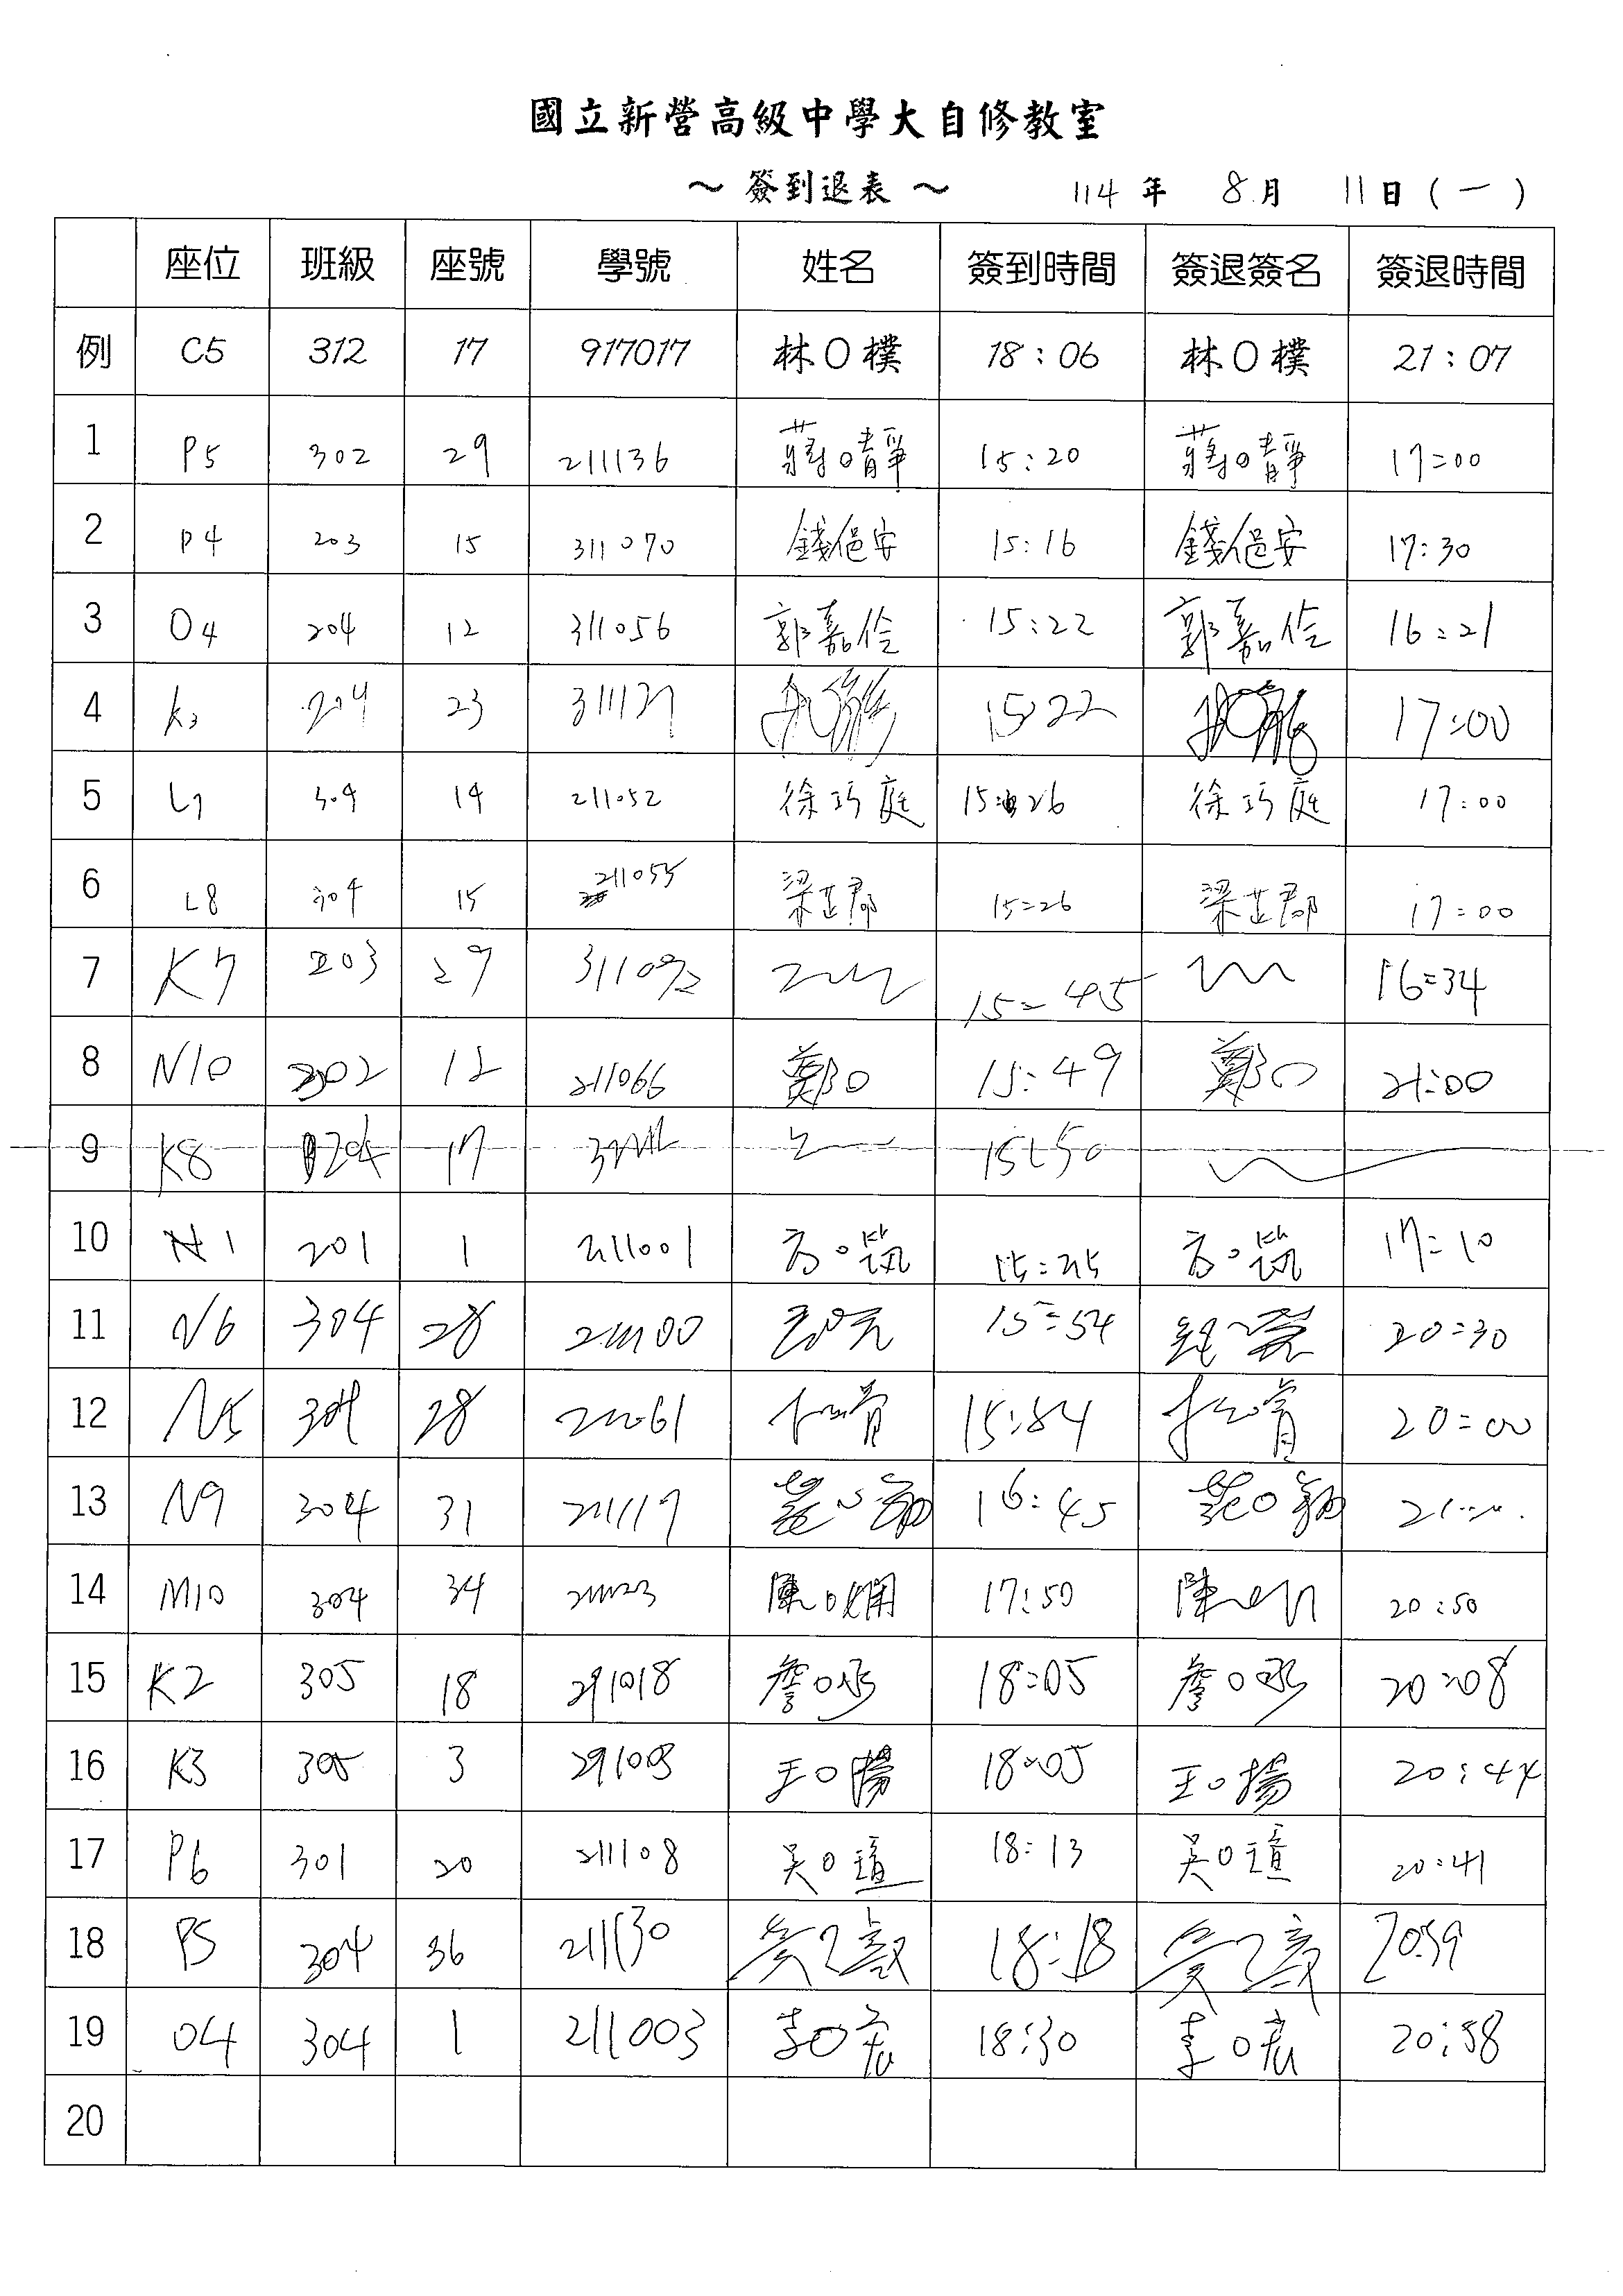 國立新營高級中學大自修教室
～ 簽到退表 ～ 114 年 8 月 11 日 ( 一 )
座位 班級 座號 學號 姓名 簽到時間 簽退簽名 簽退時間
例 C5 312 17 917017 林O樸 18:06 林O樸 21:07
1 P5 302 29 211136 蔣O靜 15:20 蔣O靜 17:00
2 P4 203 15 311070 錢俋安 15:16 錢俋安 17:30
3 O4 204 12 311056 郭嘉伶 15:22 郭嘉伶 16:21
4 K3 204 23 15:22 17:00
5 L7 304 14 211052 徐巧庭 15:26 徐巧庭 17:00
6 L8 304 15 211055 梁芷郡 15:26 梁芷郡 17:00
7 K7 203 29 311092 15:45 16:34
8 N10 302 12 211066 鄭O 15:49 鄭O 21:00
9 K8 204 17 15:50
10 N1 201 1 211001 方O筑 15:25 方O筑 17:10
11 N6 304 28 15:54 20:30
12 N5 304 28 15:54 20:00
13 N9 304 31 211117 范O翰 16:45 范O翰
14 M10 304 34 陳O嫻 17:50 陳 20:50
15 K2 305 18 291018 詹O丞 18:05 詹O丞 20:08
16 K3 305 3 291003 王O揚 18:05 王O揚 20:44
17 P6 301 20 211108 吳O瑄 18:13 吳O瑄 20:41
18 P5 304 36 211130 18:18 20:59
19 O4 304 1 211003 李O宏 18:30 李O宏 20:58
20